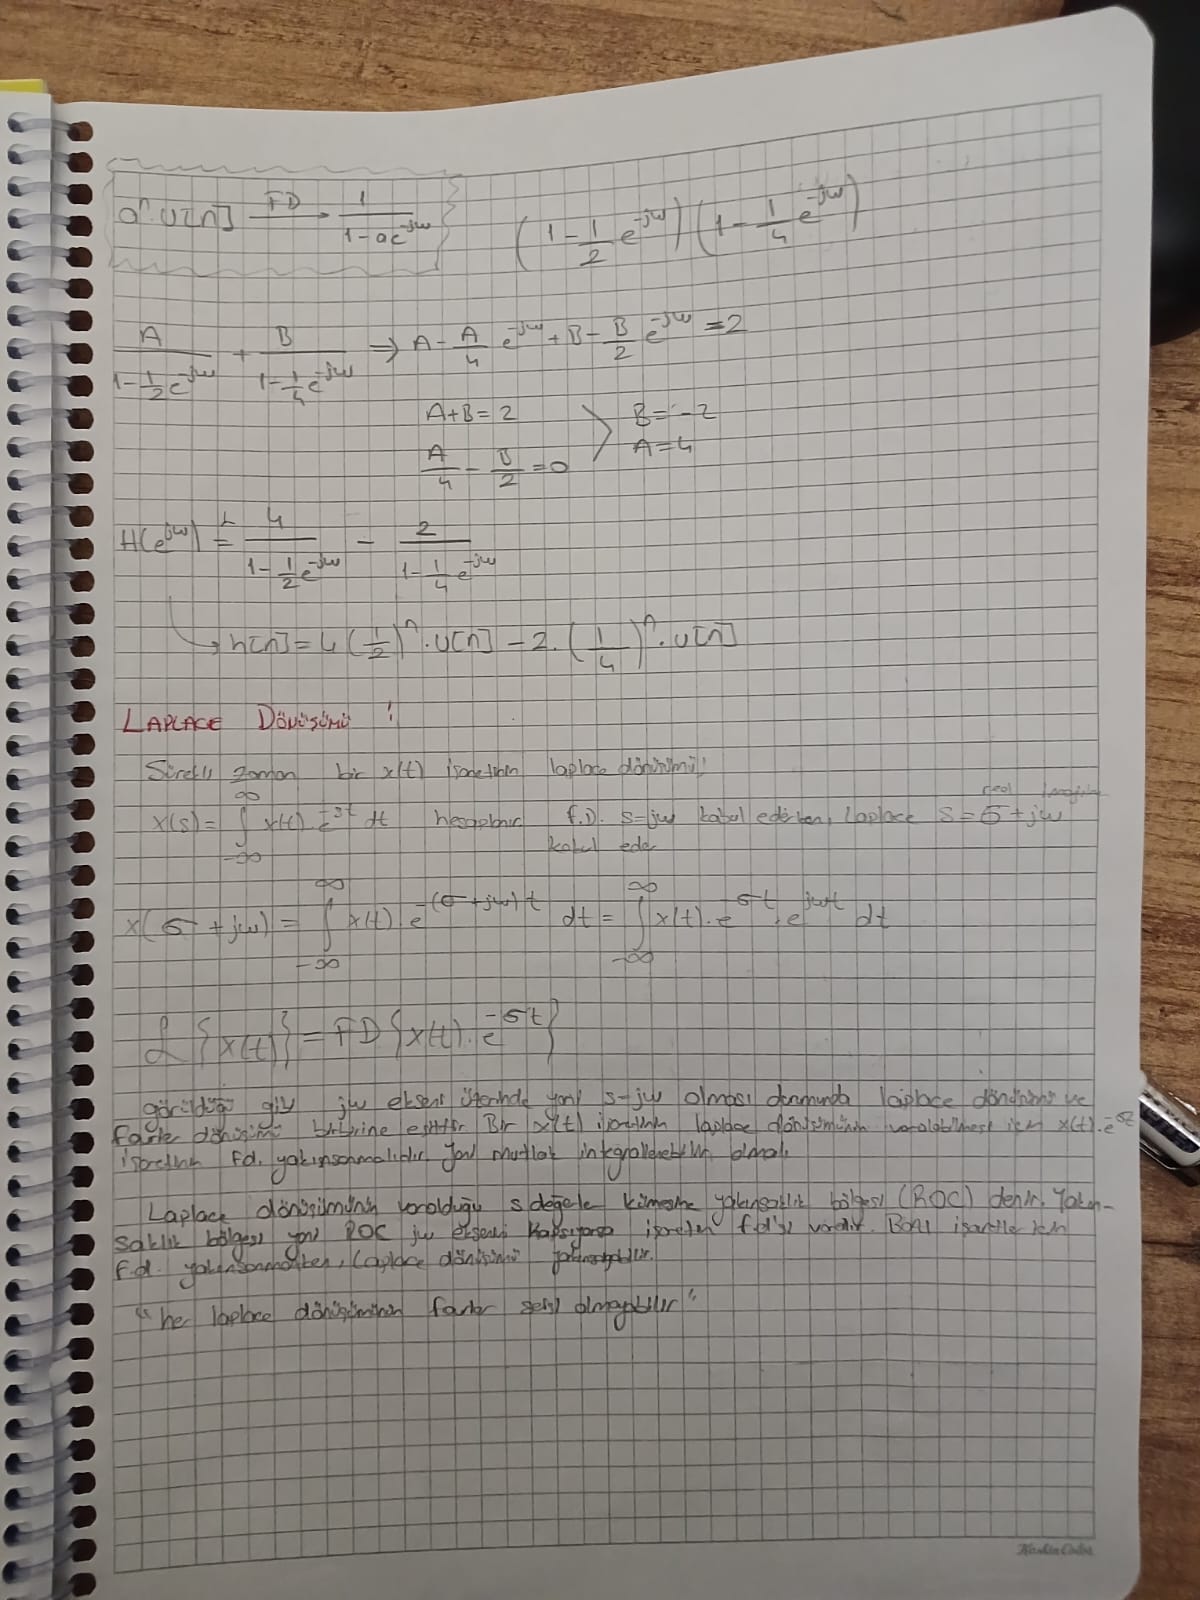 aⁿ.u[n] FD→ 1/(1-ae^-jw)
(1 - 1/2 e^-jw)(1 - 1/4 e^-jw)
A/(1 - 1/2 e^-jw) + B/(1 - 1/4 e^-jw) ⇒ A - A/4 e^-jw + B - B/2 e^-jw = 2
A+B = 2
A/4 - B/2 = 0
B = -2
A = 4
H(e^jw) = 4/(1 - 1/2 e^-jw) - 2/(1 - 1/4 e^-jw)
→ h[n] = 4 (1/2)^n . u[n] - 2. (1/4)^n . u[n]
LAPLACE DÖNÜŞÜMÜ :
Sürekli zaman bir x(t) işaretinin laplace dönüşümü;
real
X(s) = ∫_-∞^∞ x(t) e^-st dt hesaplanır f.D. s=jw kabul ederken, Laplace s = σ + jw
kabul eder
X(σ + jw) = ∫_-∞^∞ x(t) . e^-(σ+jw)t dt = ∫_-∞^∞ x(t) . e^-σt . e^jwt dt
ℒ{x(t)} = FD{x(t) . e^-σt}
görüldüğü gibi jw ekseni üzerinde yani s=jw olması durumunda laplace dönüşümü ve
farier dönüşümü birbirine eşittir Bir x(t) işaretinin laplace dönüşümünün varolabilmesi için x(t).e^-σt
işaretinin f.d. yakınsanmalıdır. Yani mutlak integrallenebilir olmalı
Laplace dönüşümünün varolduğu s değerler kümesine yakınsaklık bölgesi (ROC) denir. Yakın-
saklık bölgesi yani ROC jw ekseni kapsıyorsa işaretin f.d'si vardır. Bazı işaretler için
f.d. yakınsanmazken, Laplace dönüşümü yakınsayabilir.
"her laplace dönüşümünün farier olmayabilir"